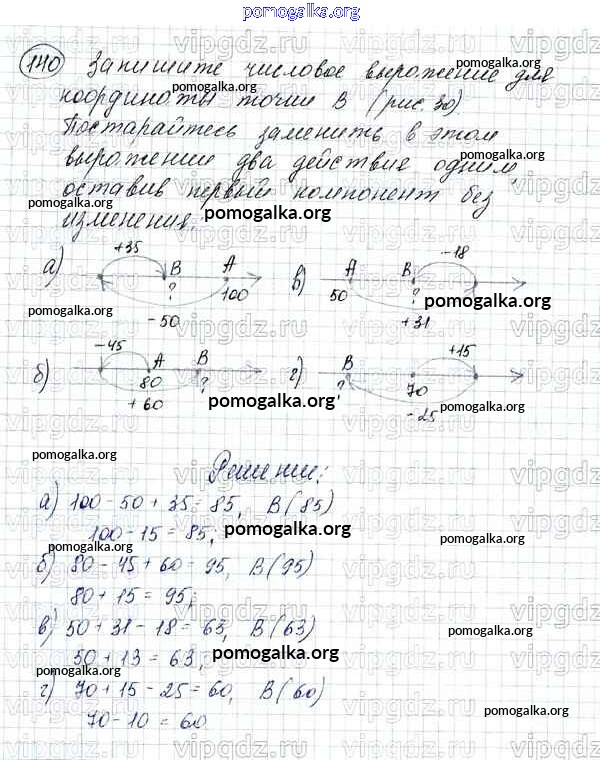 pomogalka.org
140 Запишите числовое выражение для
координаты точки В (рис. 30)
Постарайтесь заменить в этом
выражении два действия одним,
оставив первый компонент без
изменения.
pomogalka.org
а) +35 В А ? 100 -50
в) -18 А В 50 ? +31
pomogalka.org
б) -45 А В 80 ? +60
г) +15 В ? 70 -25
pomogalka.org
Решение:
pomogalka.org
а) 100 - 50 + 35 = 85, В(85)
100 - 15 = 85;
pomogalka.org
б) 80 - 45 + 60 = 95, В(95)
80 + 15 = 95;
в) 50 + 31 - 18 = 63, В(63)
50 + 13 = 63;
pomogalka.org
г) 70 + 15 - 25 = 60, В(60)
70 - 10 = 60
pomogalka.org
vipgdz.ru